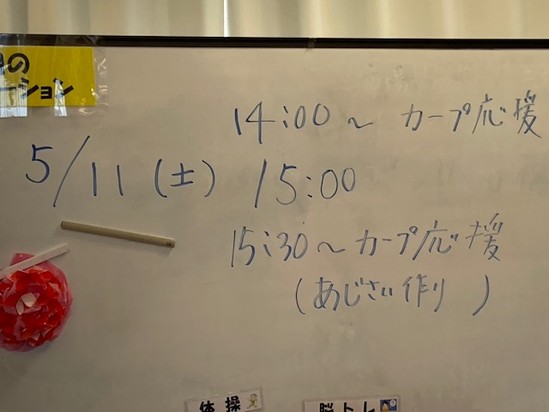 の
ーション
14:00～ カープ応援
5/11(土) 15:00
15:30～カープ応援
(あじさい作り)
体操
脳トレ